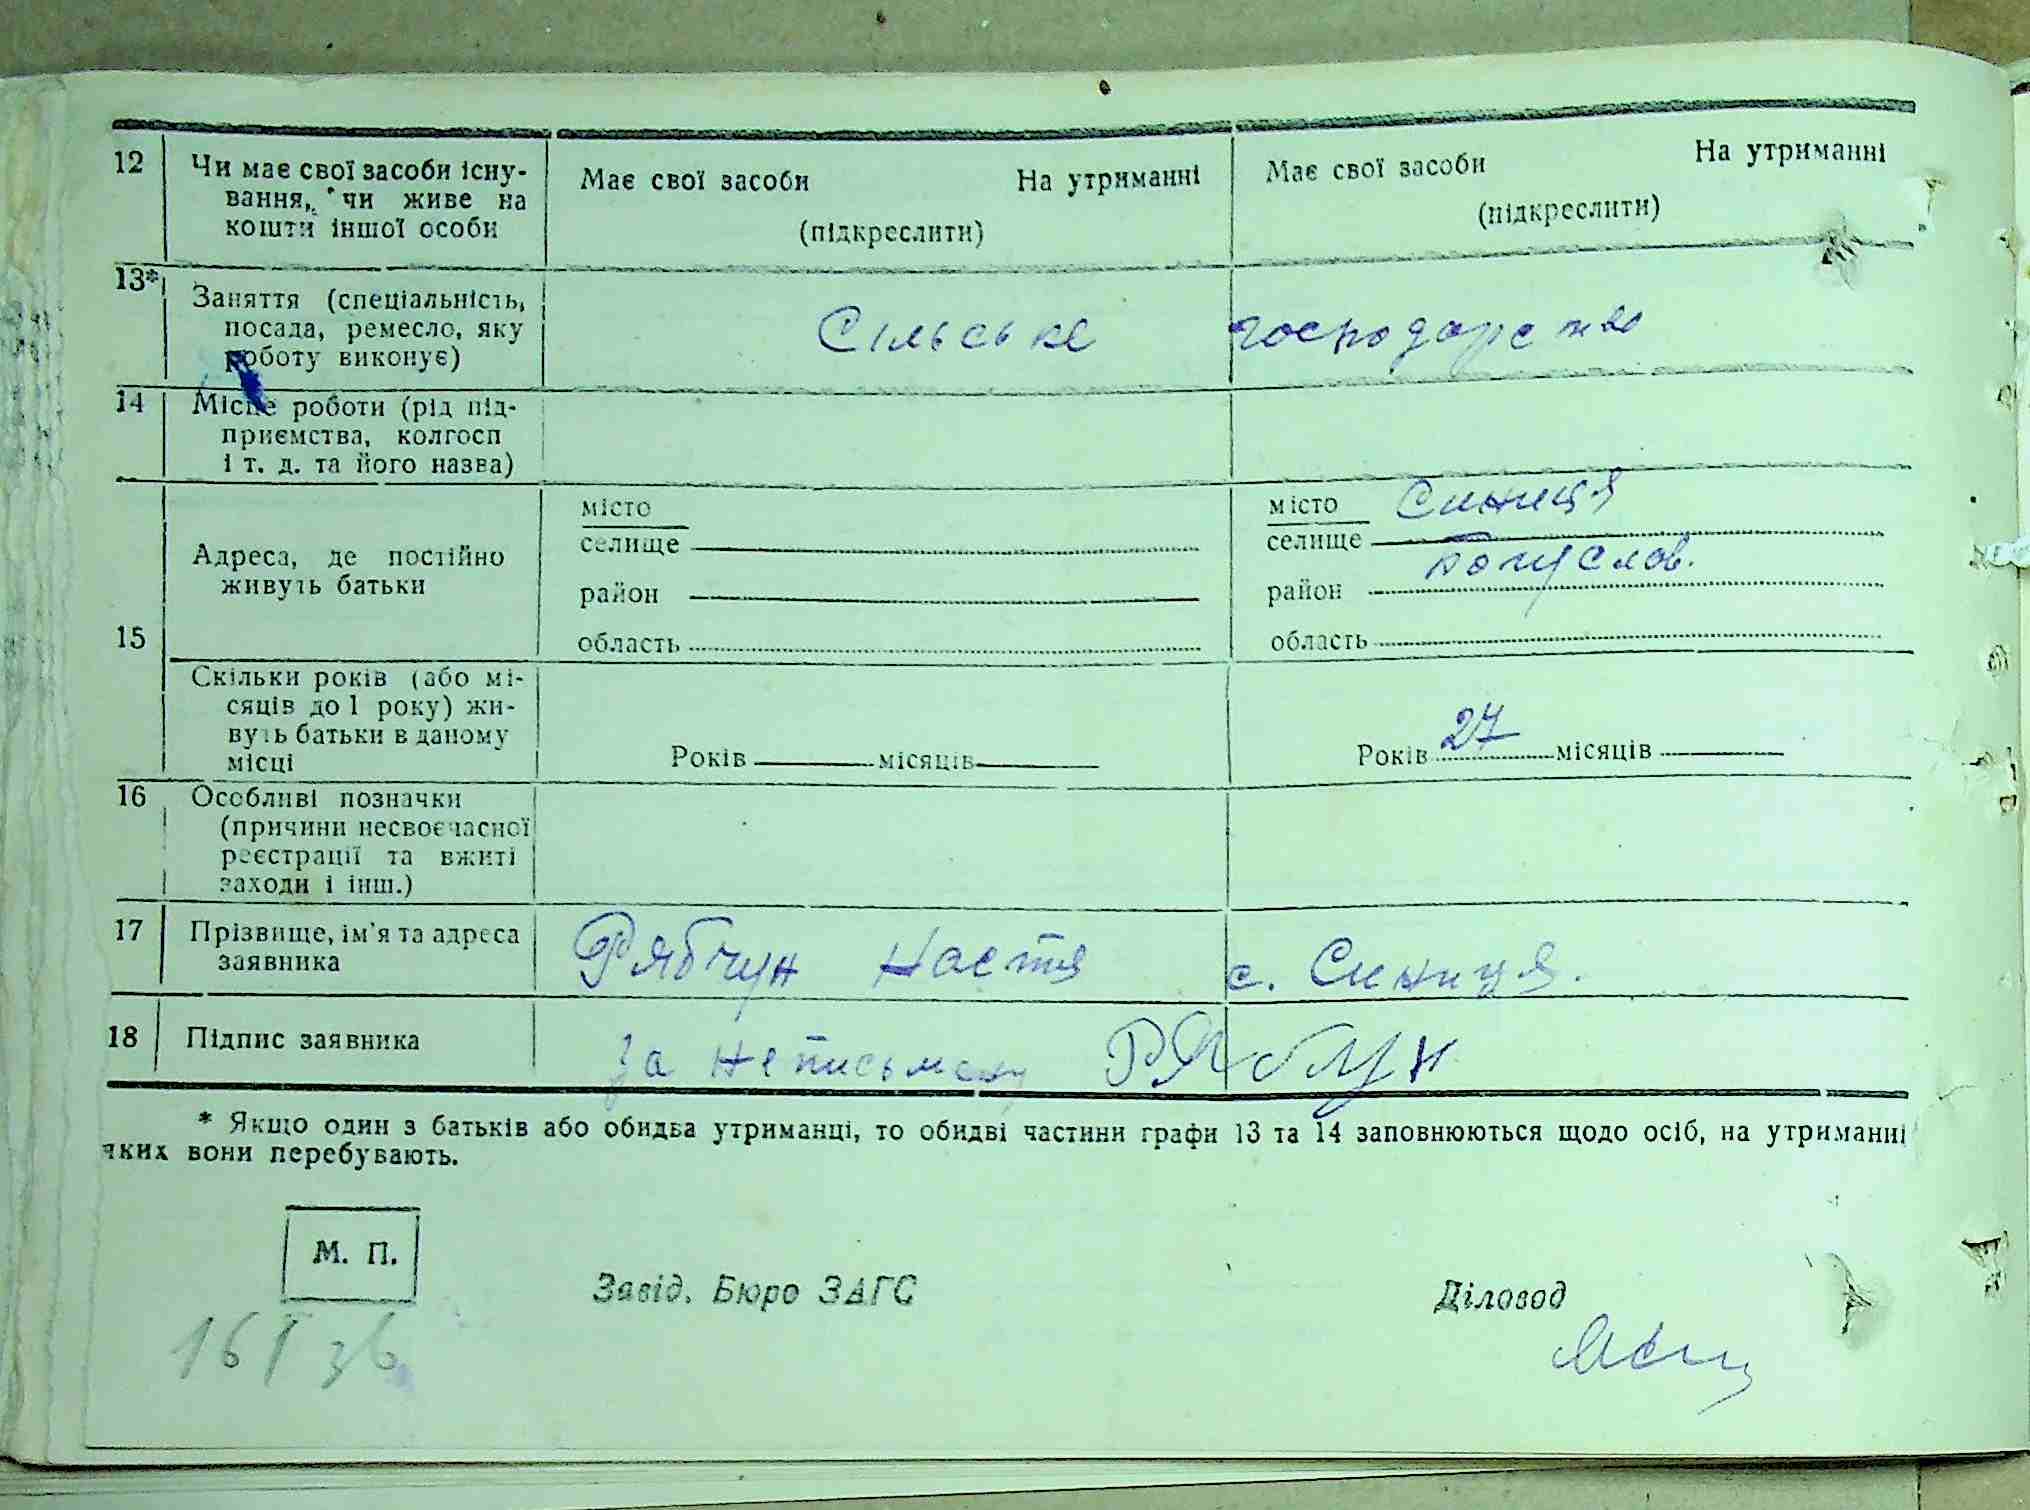 12 Чи має свої засоби існу-
вання, чи живе на
кошти іншої особи
Має свої засоби На утриманні
(підкреслити)
Має свої засоби На утриманні
(підкреслити)
13* Заняття (спеціальність,
посада, ремесло, яку
роботу виконує)
Сільське господарство
14 Місце роботи (рід під-
приємства, колгосп
і т. д. та його назва)
15 Адреса, де постійно
живуть батьки
місто
селище
район
область
місто Синиця
селище
район Богуслав.
область
Скільки років (або мі-
сяців до 1 року) жи-
вуть батьки в даному
місці
Років місяців
Років 27 місяців
16 Особливі позначки
(причини несвоєчасної
реєстрації та вжиті
заходи і інш.)
17 Прізвище, ім'я та адреса
заявника
Рябчун Настя с. Синиця.
18 Підпис заявника
за неписьмену Рябчун
* Якщо один з батьків або обидва утриманці, то обидві частини графи 13 та 14 заповнюються щодо осіб, на утриманні
яких вони перебувають.
М. П.
Завід. Бюро ЗАГС Діловод
16 I 36